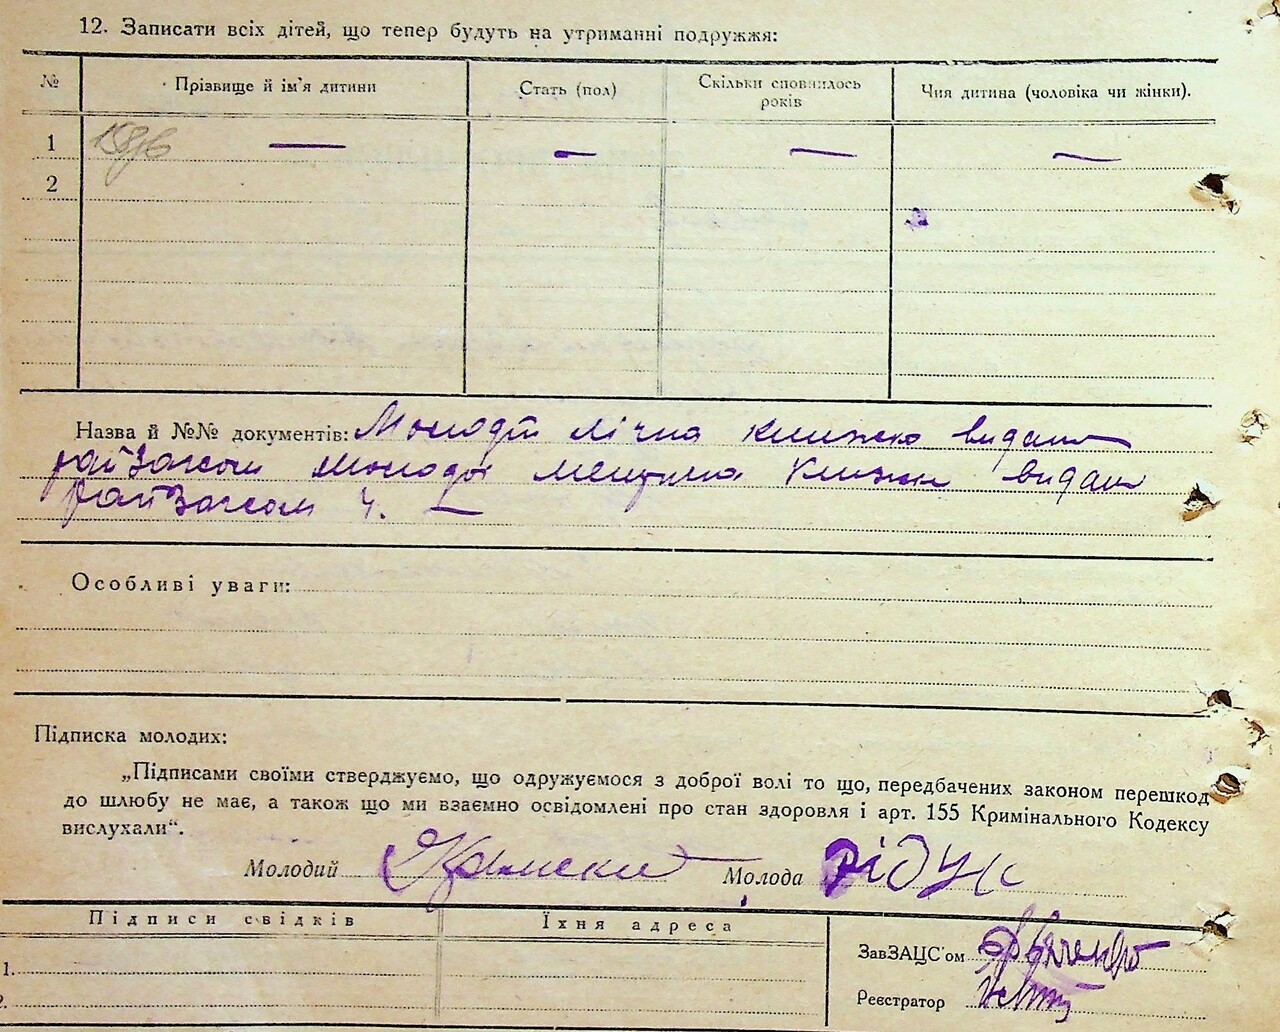 12. Записати всіх дітей, що тепер будуть на утриманні подружжя:
№ Прізвище й ім'я дитини Стать (пол) Скільки сповнилось років Чия дитина (чоловіка чи жінки).
1 — — — —
2
Назва й №№ документів: Молодий лічна книжка видана
райЗагсом Молодої книжка видан
райЗагсом Ч. —
Особливі уваги:
Підписка молодих:
„Підписами своїми стверджуємо, що одружуємося з доброї волі то що, передбачених законом перешкод
до шлюбу не має, а також що ми взаємно освідомлені про стан здоровля і арт. 155 Кримінального Кодексу
вислухали“.
Молодий Молода
Підписи свідків Їхня адреса
ЗавЗАЦС'ом
1.
Реєстратор
2.